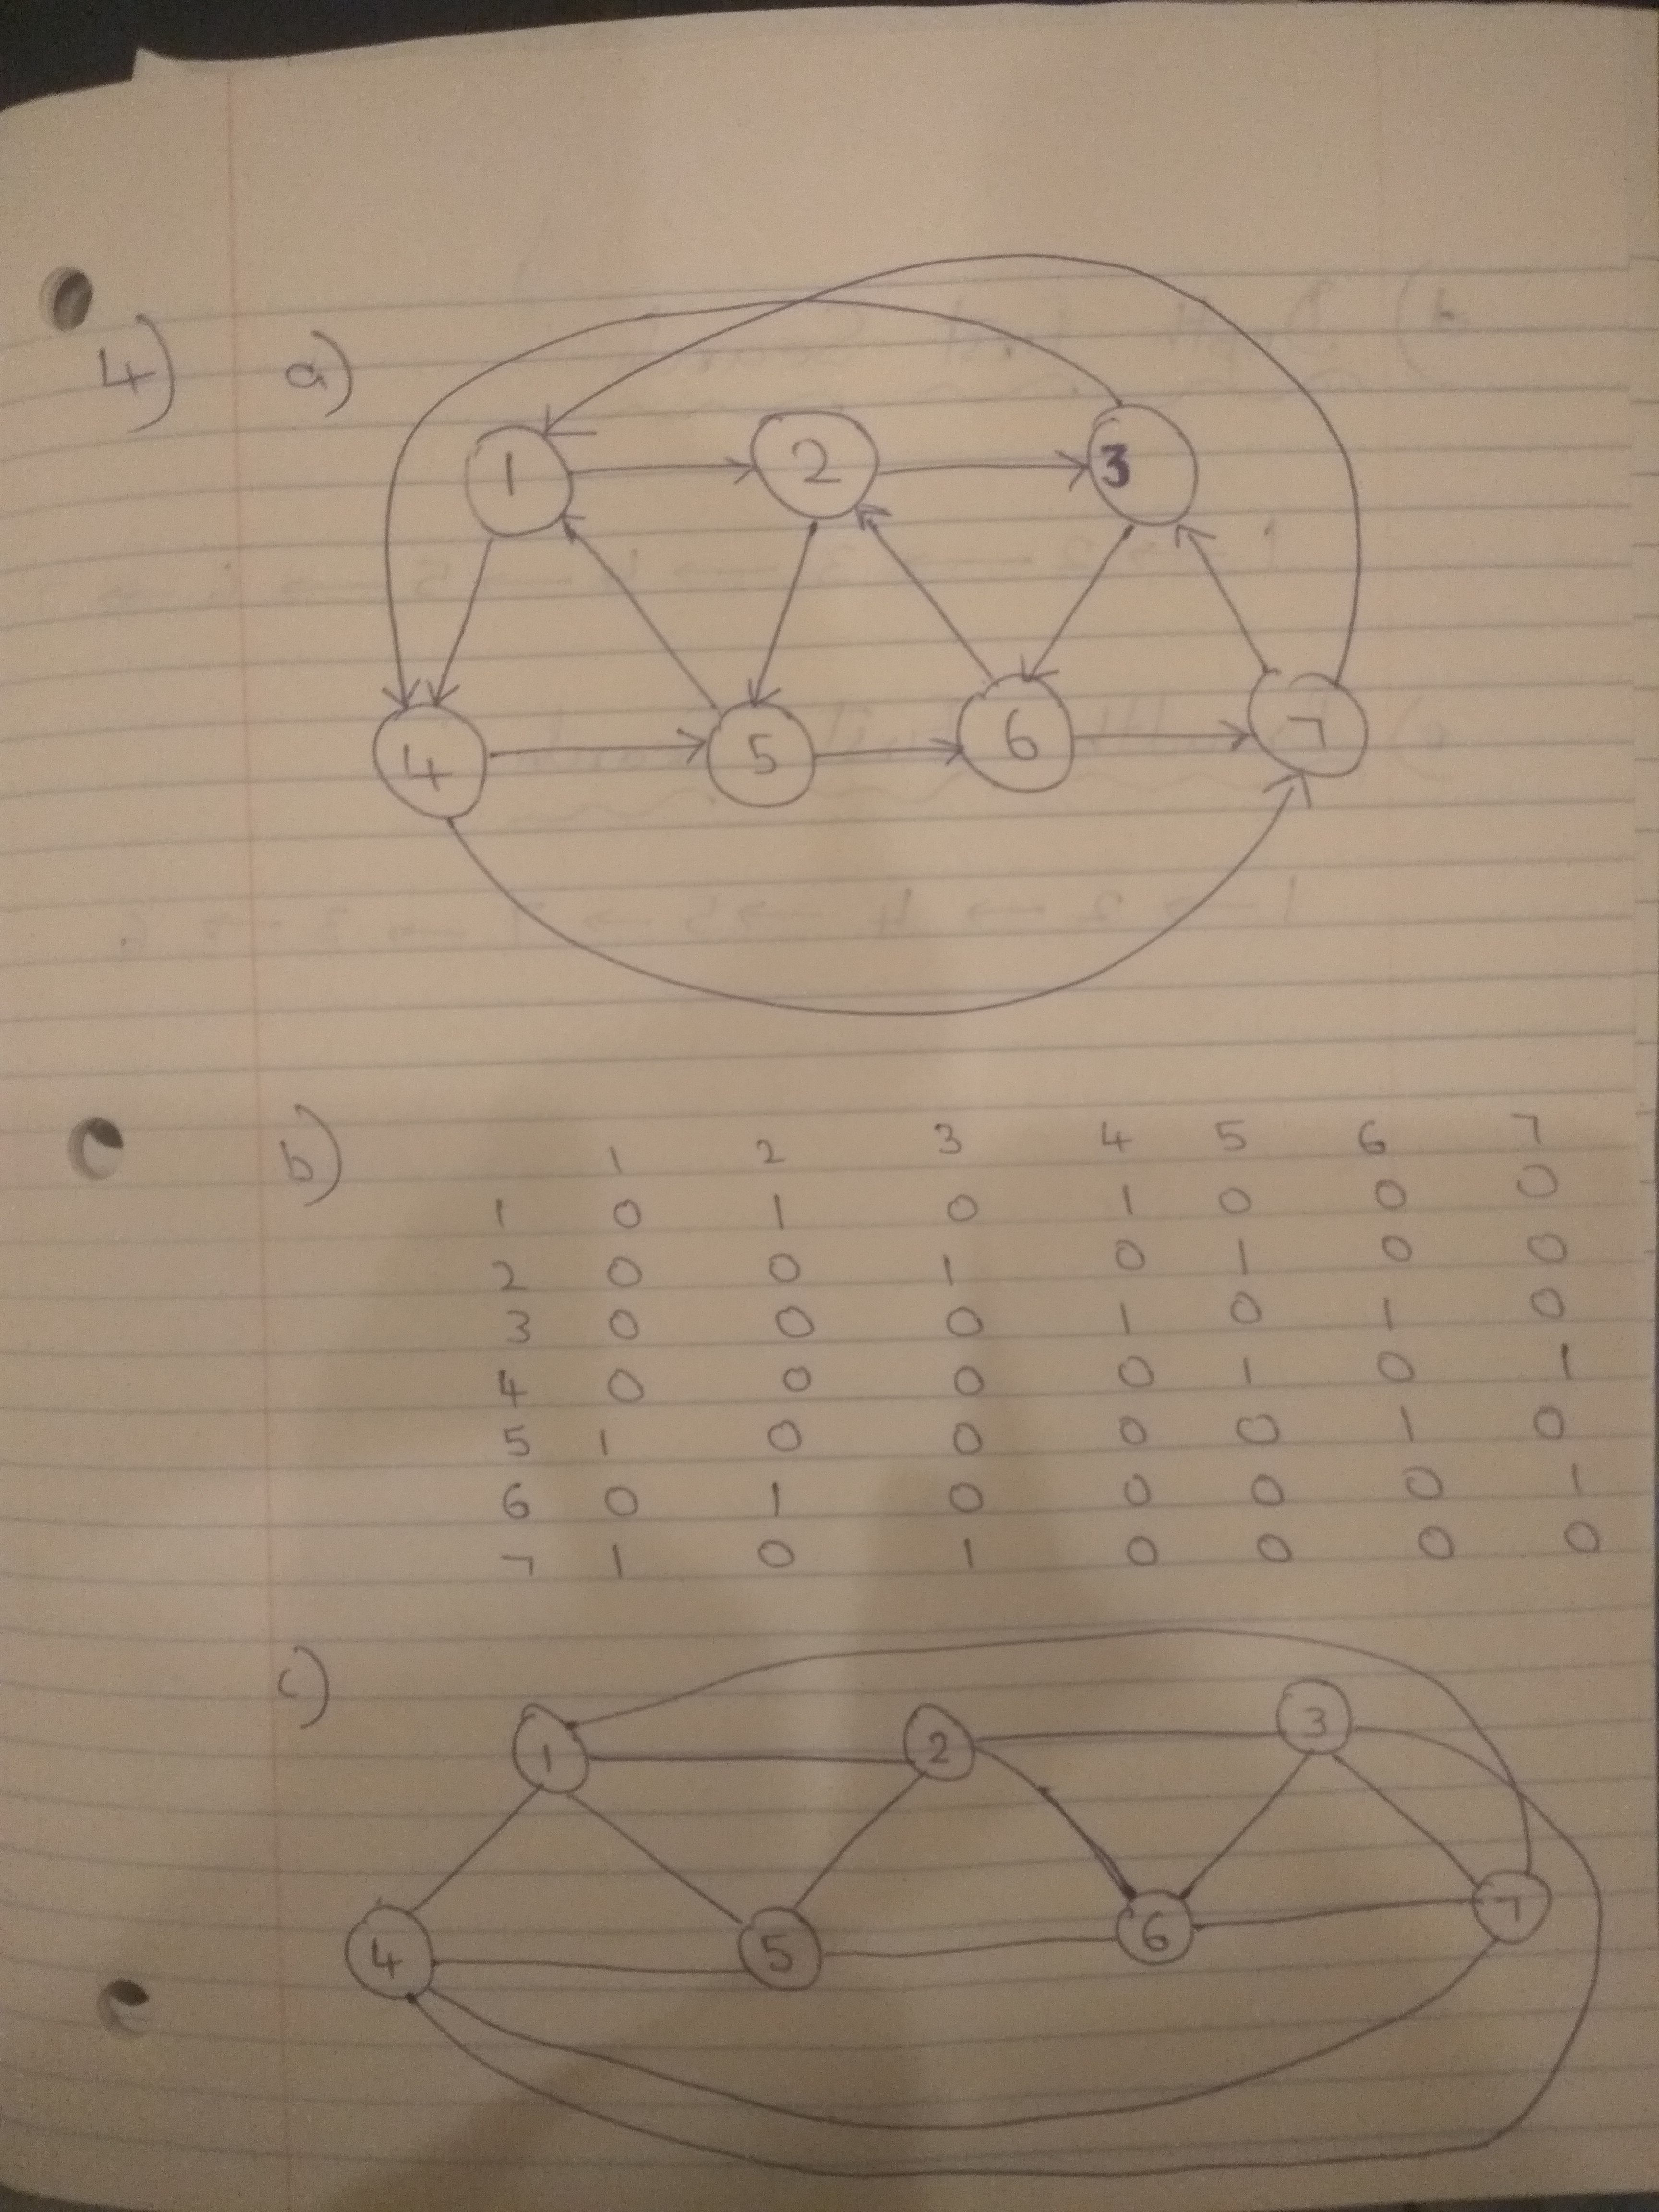 4) a)
1 2 3
4 5 6 7
b) 1 2 3 4 5 6 7
1 0 1 0 1 0 0 0
2 0 0 1 0 1 0 0
3 0 0 0 1 0 1 0
4 0 0 0 0 1 0 1
5 1 0 0 0 0 1 0
6 0 1 0 0 0 0 1
7 1 0 1 0 0 0 0
c)
1 2 3
4 5 6 7